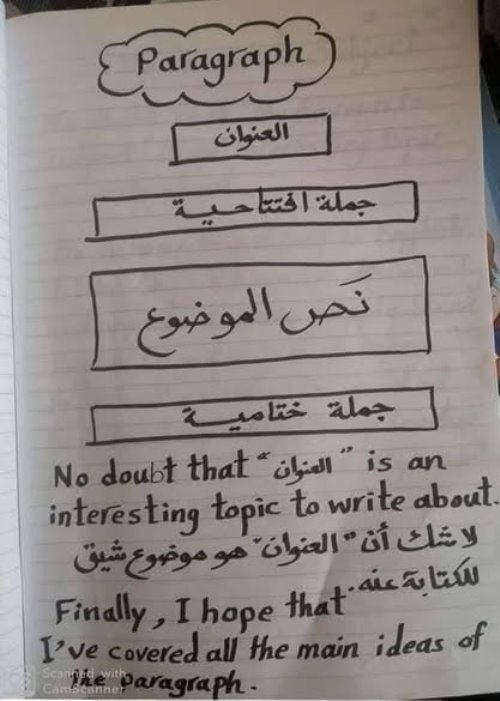 Paragraph
العنوان
جملة افتتاحية
نَص الموضوع
جملة ختامية
No doubt that "العنوان" is an
interesting topic to write about.
لا شك أن "العنوان" هو موضوع شيق
للكتابة عنه.
Finally, I hope that
I've covered all the main ideas of
the paragraph.
Scanned with
CamScanner